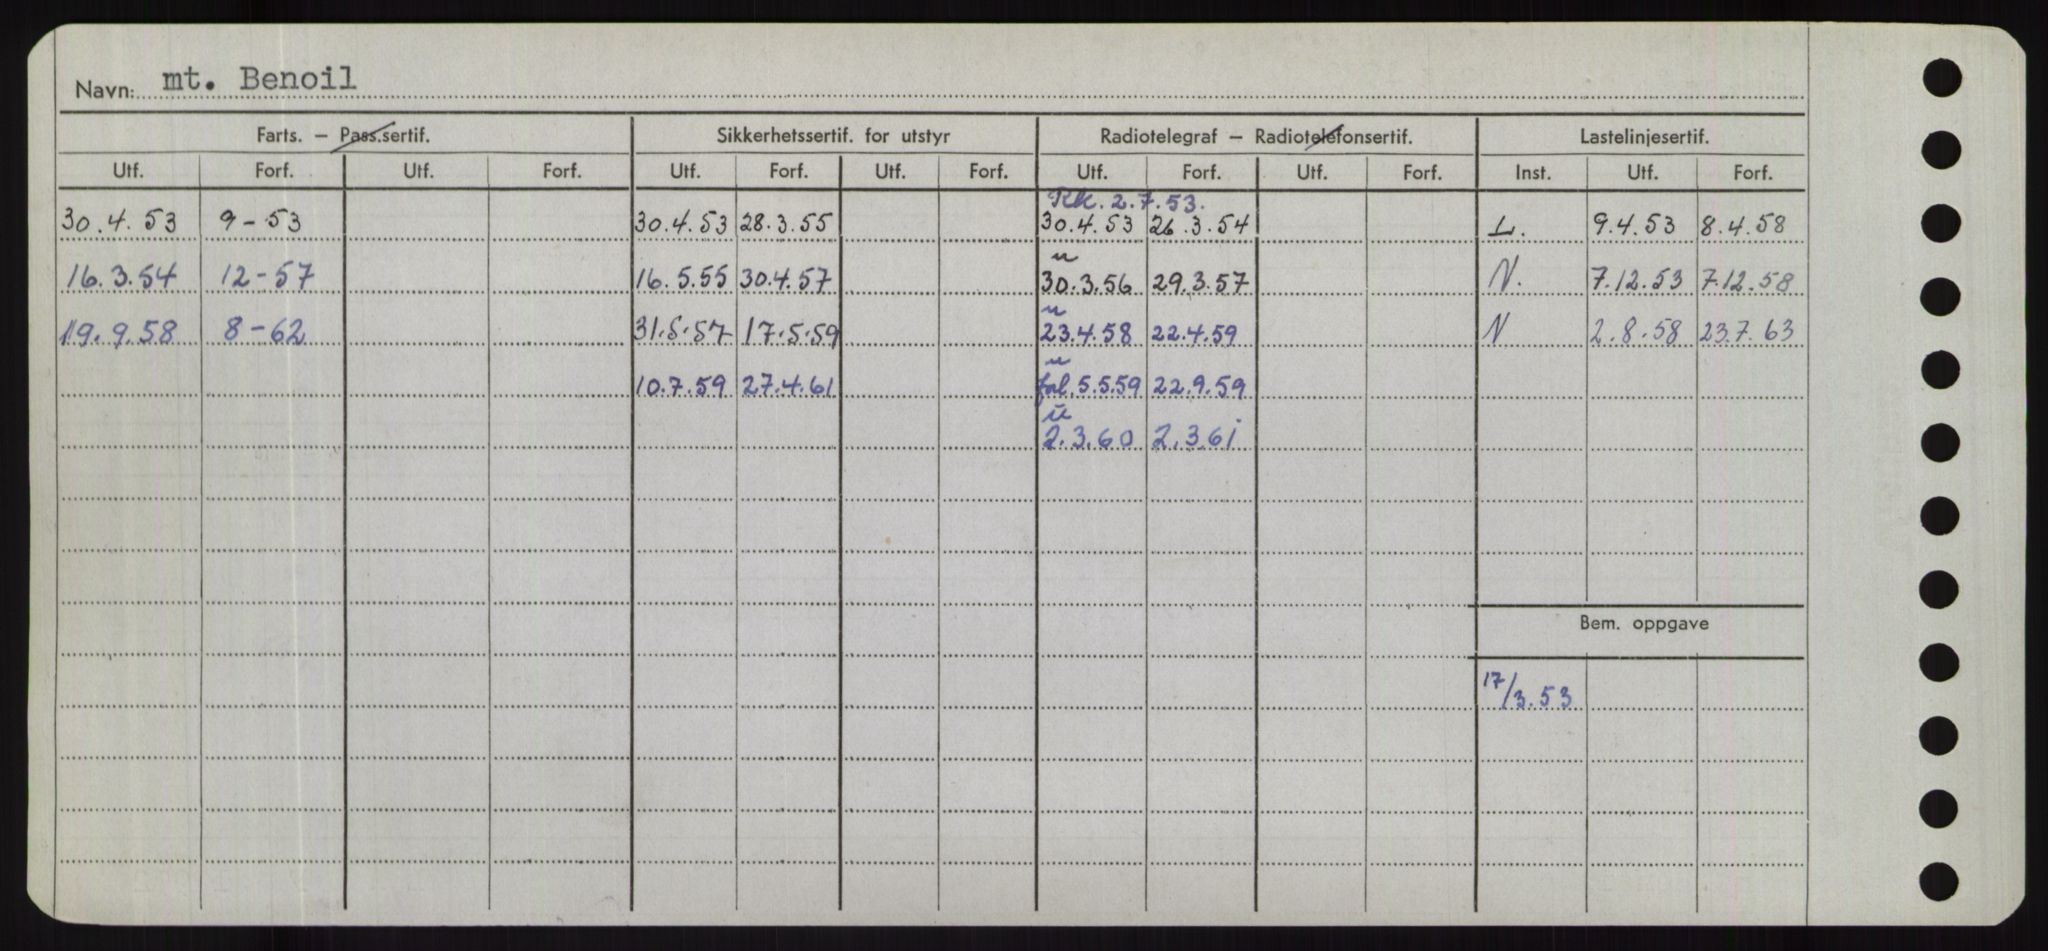 Navn: mt. Benoil
Farts. — Pass.sertif. Sikkerhetssertif. for utstyr Radiotelegraf — Radiotelefonsertif. Lastelinjesertif.
Utf. Forf. Utf. Forf. Utf. Forf. Utf. Forf. Utf. Forf. Utf. Forf. Inst. Utf. Forf.
Rk. 2.7.53.
30.4.53 9-53 30.4.53 28.3.55 30.4.53 26.3.54 L. 9.4.53 8.4.58
u
16.3.54 12-57 16.5.55 30.4.57 30.3.56 29.3.57 N. 7.12.53 7.12.58
u
19.9.58 8-62 31.5.57 17.5.59 23.4.58 22.4.59 N 2.8.58 23.7.63
u
10.7.59 27.4.61 fal. 5.5.59 22.9.59
u
2.3.60 2.3.61
Bem. oppgave
17/3.53